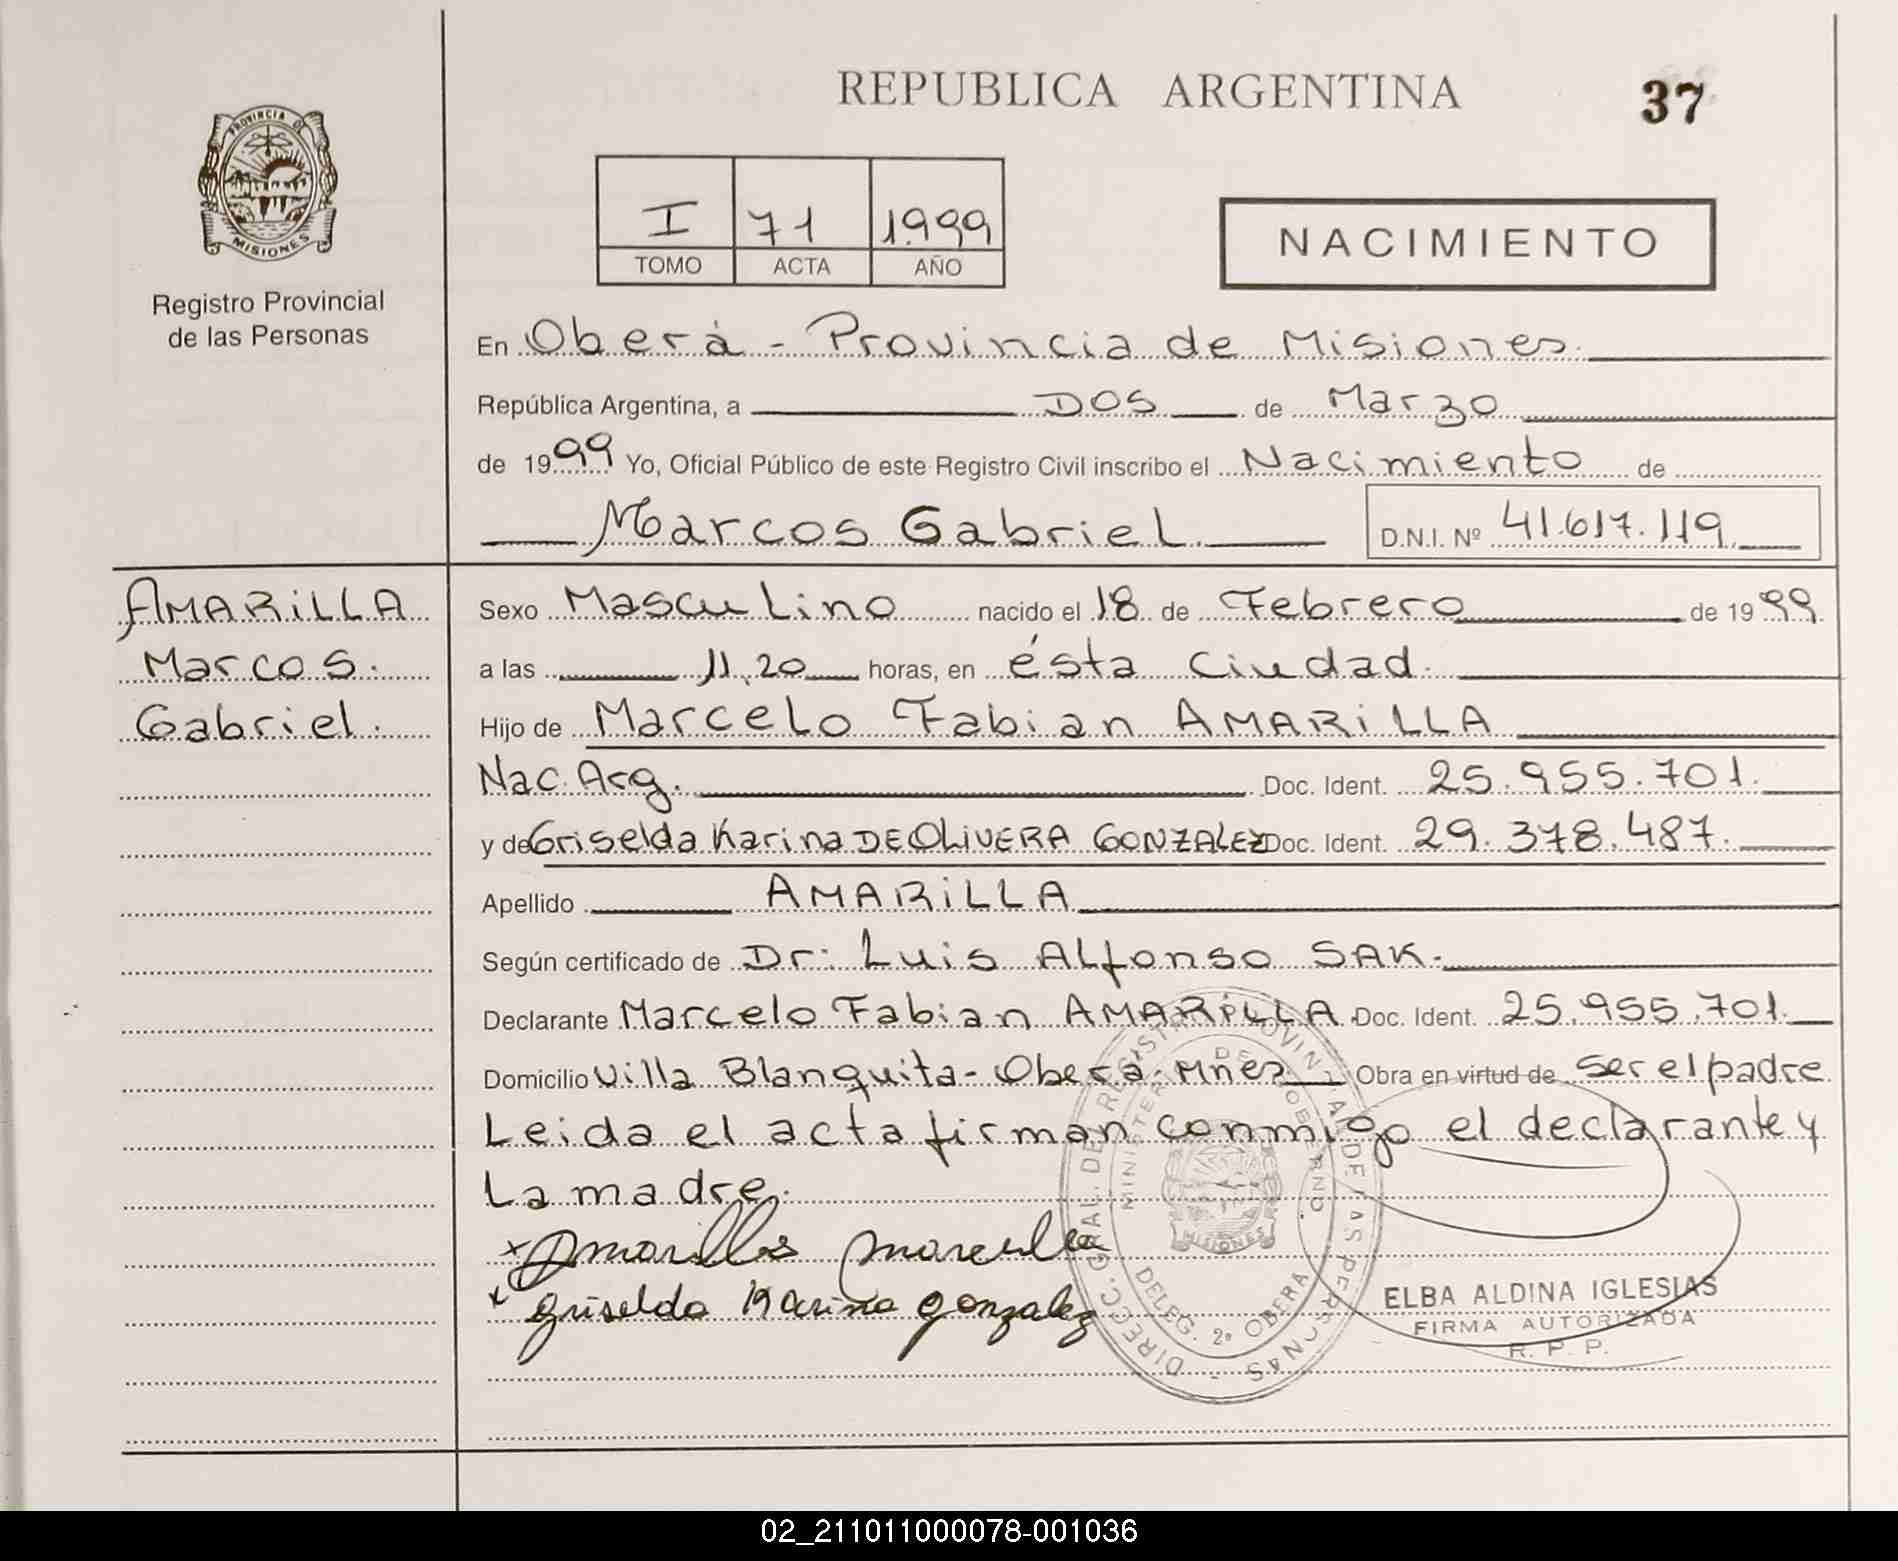 REPUBLICA ARGENTINA
37
PROVINCIA DE
MISIONES
Registro Provincial
de las Personas
I 71 1999
TOMO ACTA AÑO
NACIMIENTO
En Oberá - Provincia de Misiones.
República Argentina, a DOS de Marzo
de 1999 Yo, Oficial Público de este Registro Civil inscribo el Nacimiento de
Marcos Gabriel. D.N.I. Nº 41.617.119
AMARiLLA
Marcos.
Gabriel.
Sexo Masculino nacido el 18 de Febrero de 1999
a las 11.20 horas, en ésta Ciudad.
Hijo de Marcelo Fabian AMARiLLA
Nac. Arg. Doc. Ident. 25.955.701.
y de Griselda Karina DE OLiVERA GONZALEZ Doc. Ident. 29.378.487.
Apellido AMARiLLA
Según certificado de Dr: Luis Alfonso SAK.
Declarante Marcelo Fabian AMARiLLA Doc. Ident. 25.955.701.
Domicilio Villa Blanquita - Oberá - Mnes Obra en virtud de ser el padre
Leida el acta firman conmigo el declarante y
La madre.
x Amarilla Marcelo
x griselda Karina gonzalez
DIRECC. GRAL. DEL REGISTRO PROVINCIAL DE LAS PERSONAS -
MINISTERIO DE GOBIERNO
MISIONES
DELEG. 2ª OBERA
ELBA ALDINA IGLESIAS
FIRMA AUTORIZADA
R. P. P.
02_211011000078-001036